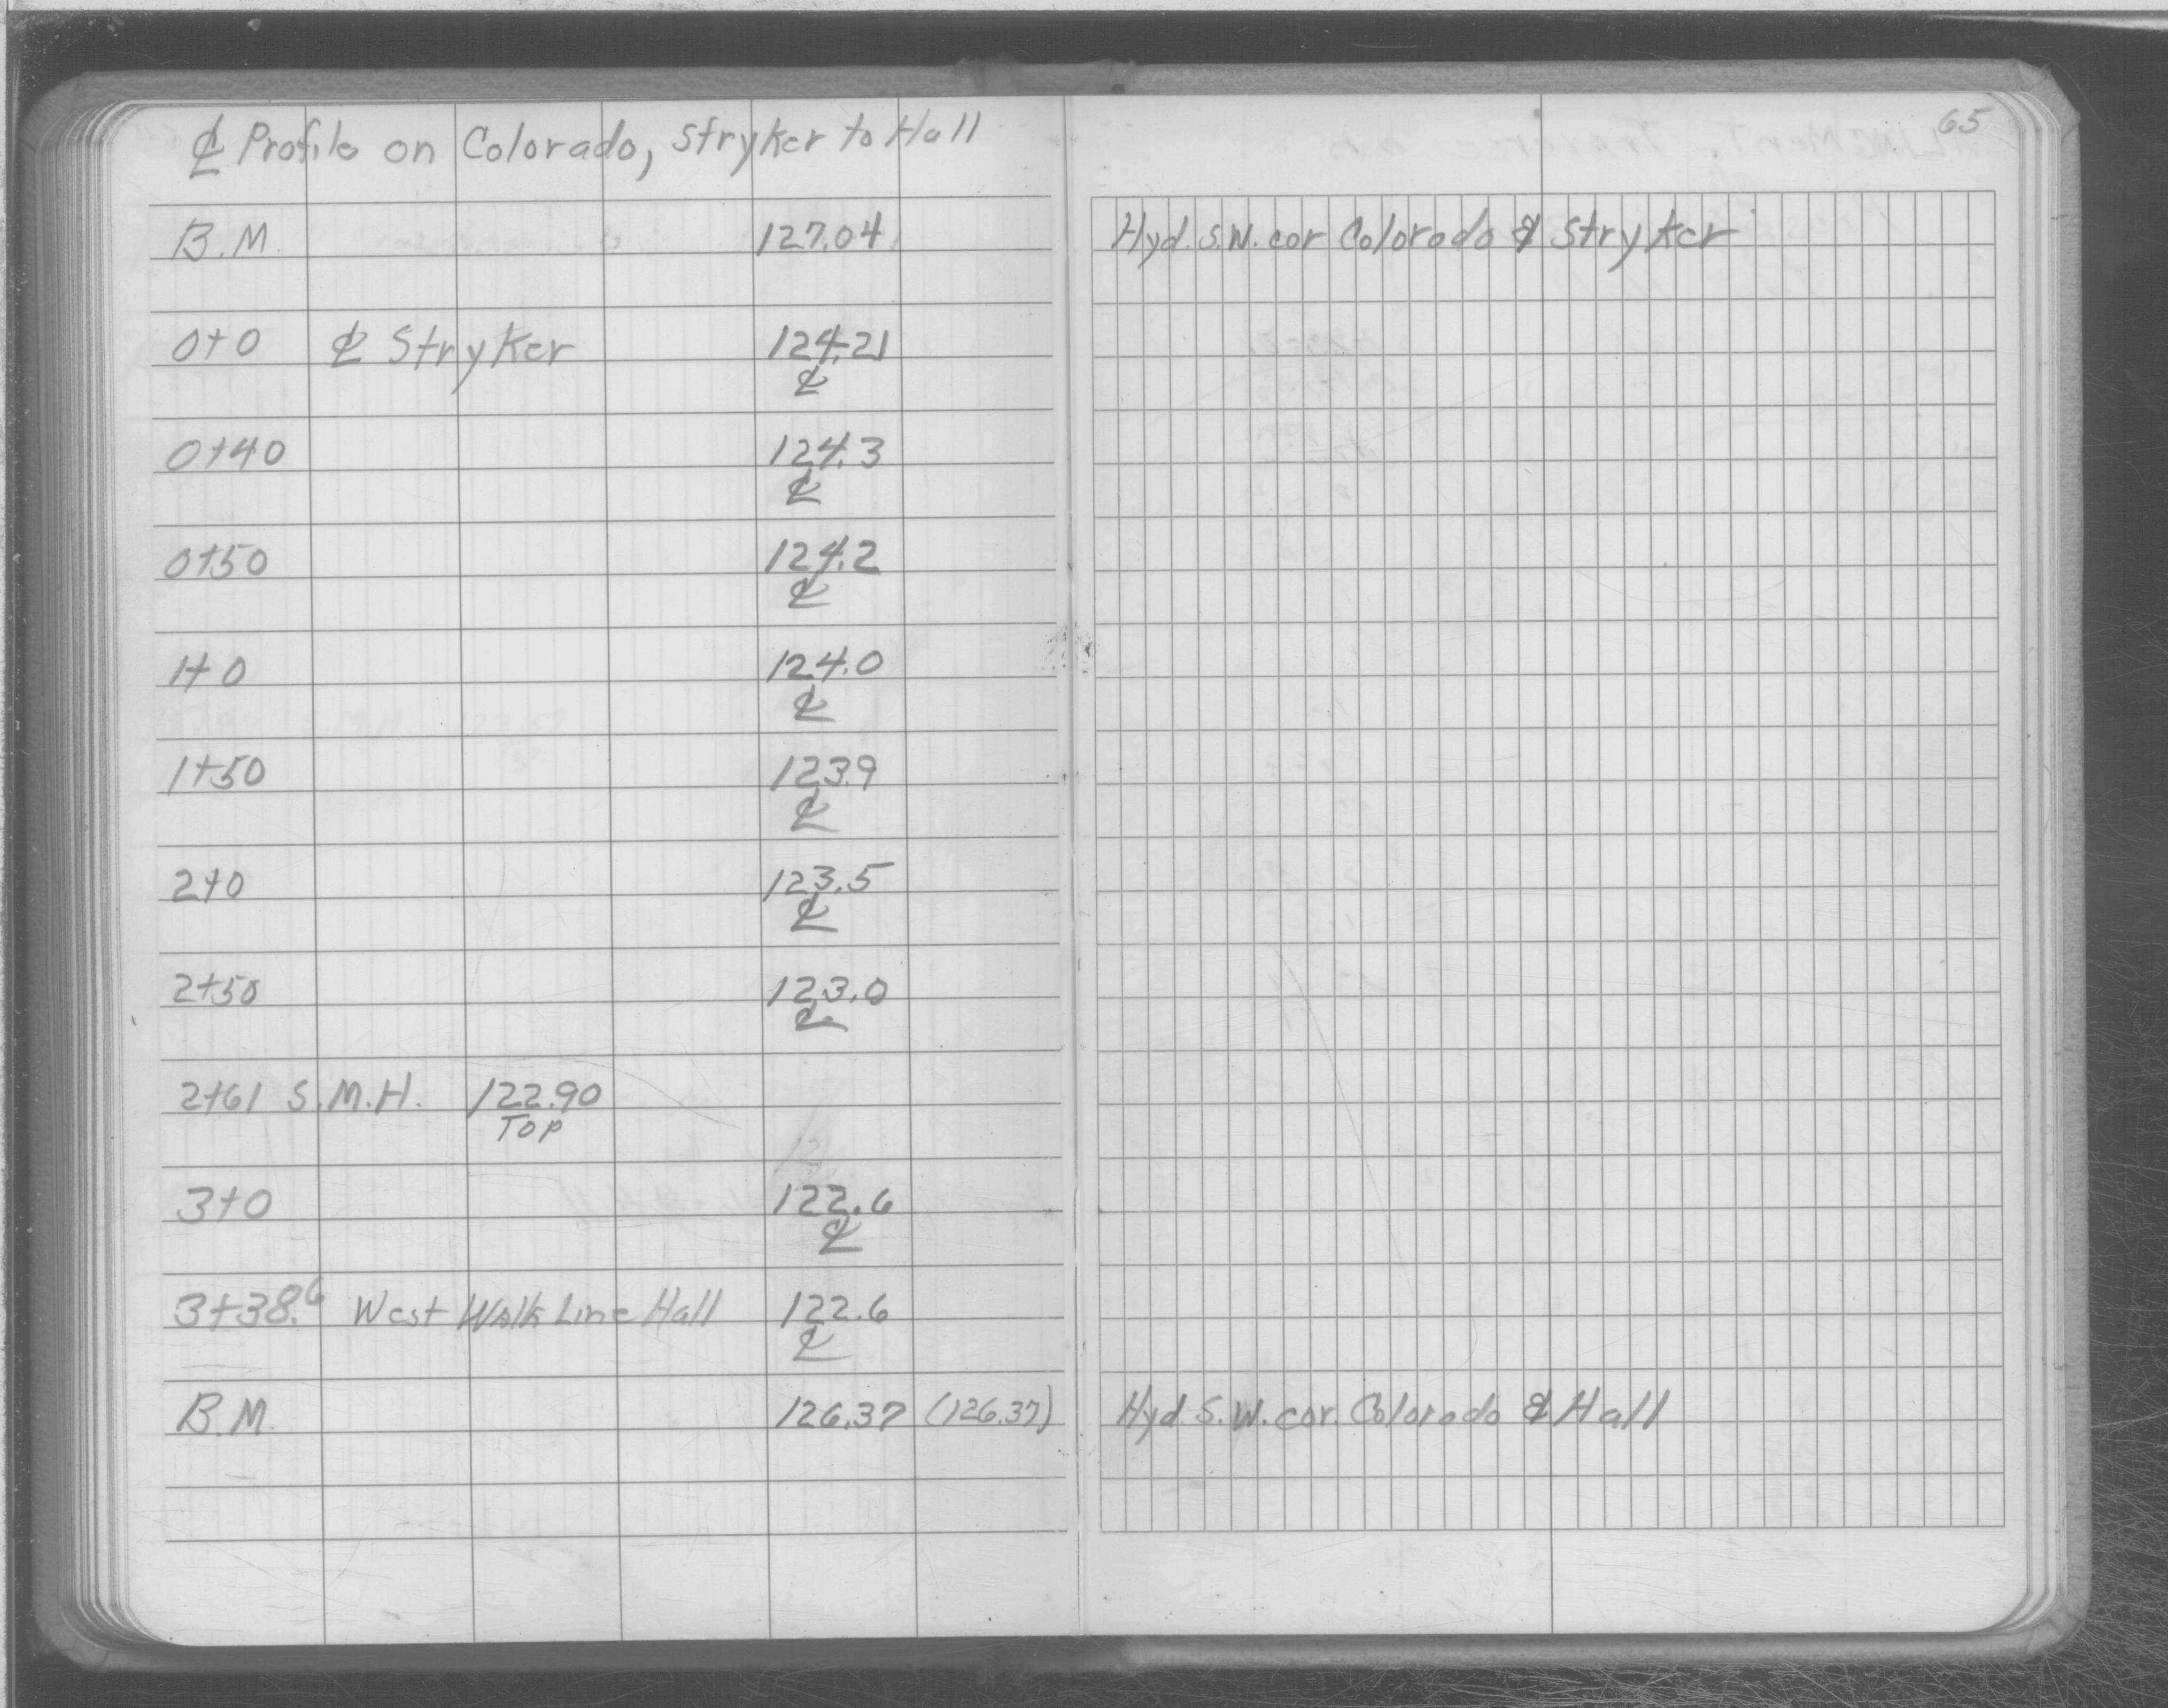 ℄ Profile on Colorado, Stryker to Hall
65
B.M. 127.04 Hyd. S.W. cor Colorado & Stryker
0+0 ℄ Stryker 124.21
℄
0+40 124.3
℄
0+50 124.2
℄
1+0 124.0
℄
1+50 123.9
℄
2+0 123.5
℄
2+50 123.0
℄
2+61 S.M.H. 122.90
Top
3+0 122.6
℄
3+38.6 West Walk Line Hall 122.6
℄
B.M. 126.37 (126.37) Hyd. S.W. cor. Colorado & Hall